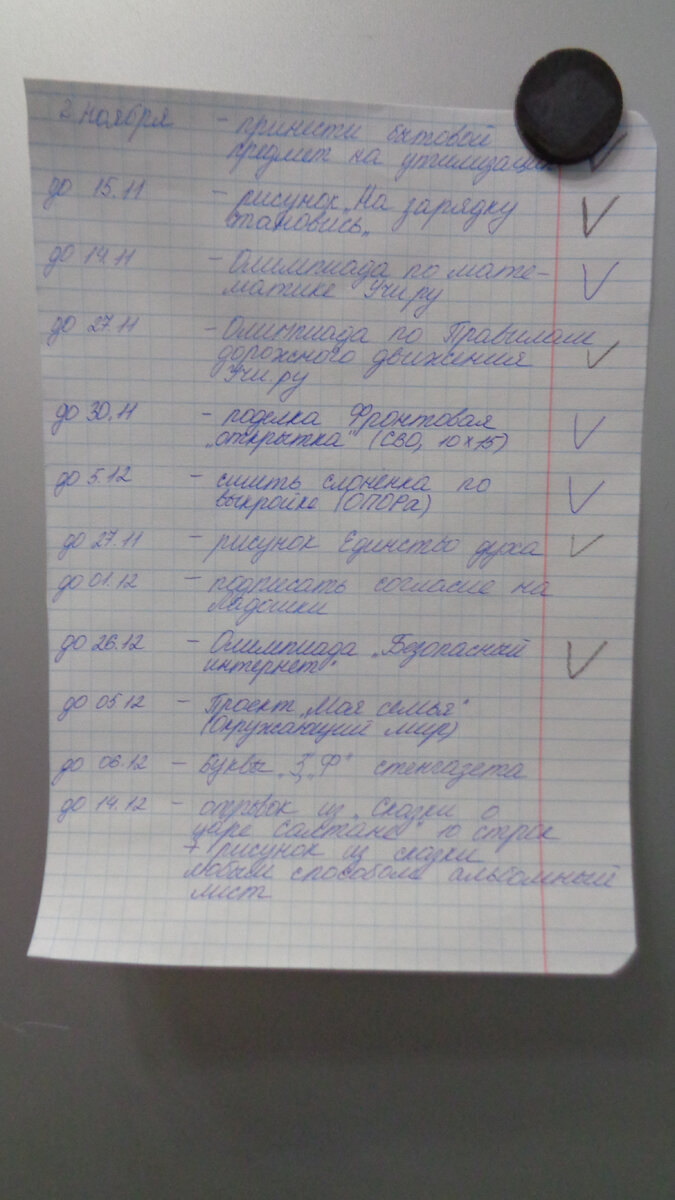 2 ноября - принести бытовой
предмет на утилизацию
до 15.11 - рисунок „На зарядку
становись„
до 14.11 - Олимпиада по мате-
матике Учи ру
до 27.11 - Олимпиада по Правилам
дорожного движения
Учи ру
до 30.11 - поделка Фронтовая
„открытка" (СВО, 10х15)
до 5.12 - сшить слонёнка по
выкройке (ОПОРа)
до 27.11 - рисунок Единство духа
до 01.12 - подписать согласие на
Ладошки
до 26.12 - Олимпиада „Безопасный
интернет"
до 05.12 - Проект „Моя семья"
(Окружающий мир)
до 06.12 - буквы „З, „Ф" стенгазета
до 14.12 - отрывок из „Сказки о
царе Салтане" 10 строк
+ рисунок из сказки
любым способом альбомный
лист